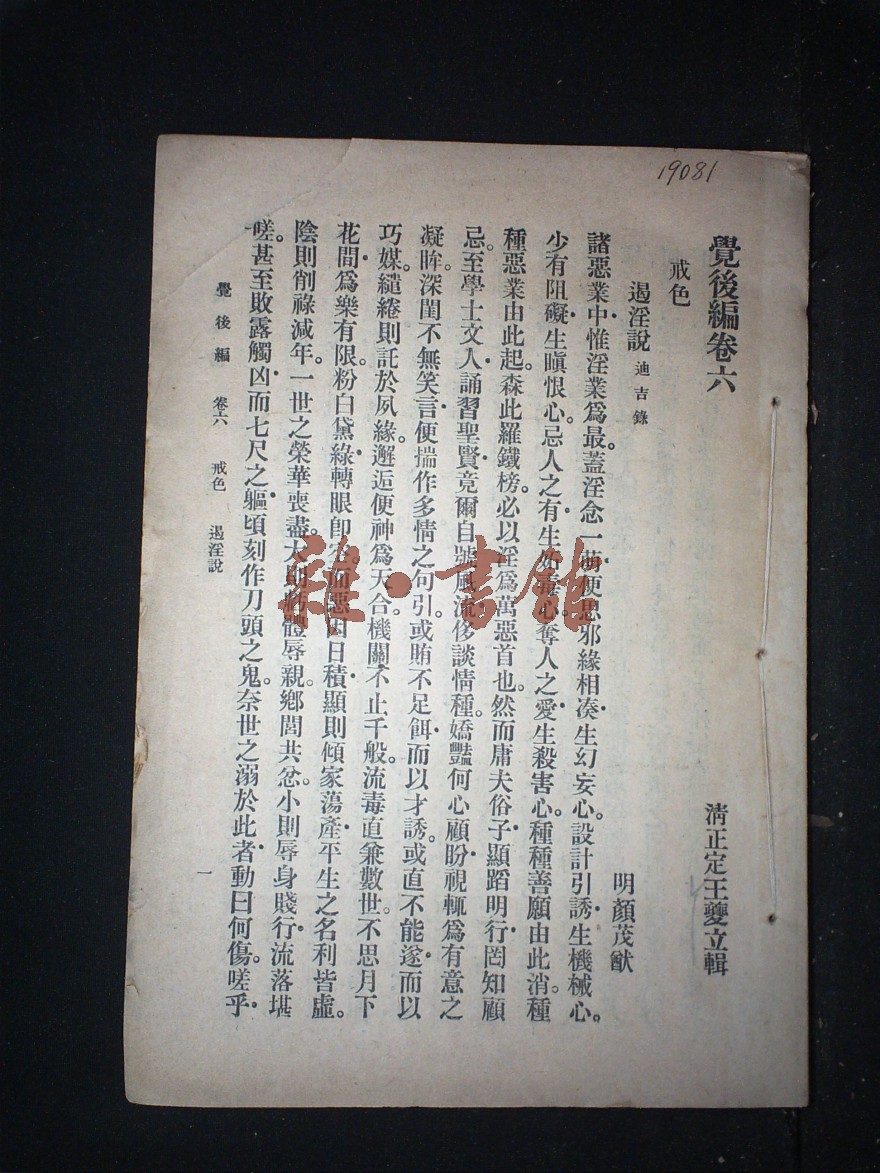 19081
覺後編卷六
清正定王夔立輯
戒色
遏淫說 迪吉錄
明顏茂猷
諸惡業中·惟淫業爲最。蓋淫念一萌·便思邪緣相湊·生幻妄心。設計引誘·生機械心。
少有阻礙·生瞋恨心。忌人之有·生妒毒心。奪人之愛·生殺害心。種種善願由此消。種
種惡業由此起。森此羅鐵榜。必以淫爲萬惡首也。然而庸夫俗子·顯蹈明行·罔知顧
忌。至學士文人·誦習聖賢·竟爾自號風流·侈談情種。嬌豔何心顧盼·視輒爲有意之
凝眸·深閨不無笑言·便揣作多情之句引。或賄不足餌·而以才誘。或直不能遂·而以
巧媒·繾綣則託於夙緣。邂逅便神爲天合·機關不止千般。流毒直兼數世。不思月下
花間·爲樂有限。粉白黛綠·轉眼卽空。而惡因日積·顯則傾家蕩產·平生之名利皆虛。
陰則削祿減年。一世之榮華喪盡。大則虧體辱親。鄉閭共忿。小則辱身賤行·流落堪
嗟。甚至敗露觸凶·而七尺之軀·頃刻作刀頭之鬼。奈世之溺於此者·動曰何傷。嗟乎·
覺後編 卷六 戒色 遏淫說 一
雜·書館